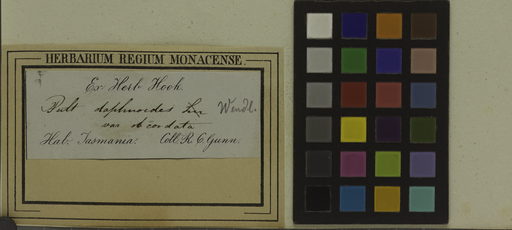 HERBARIUM REGIUM MONACENSE
Ex Herb Hook.
Pult daphnoides Sm Wendl.
var obcordata
Hab: Tasmania: Coll R. C. Gunn.